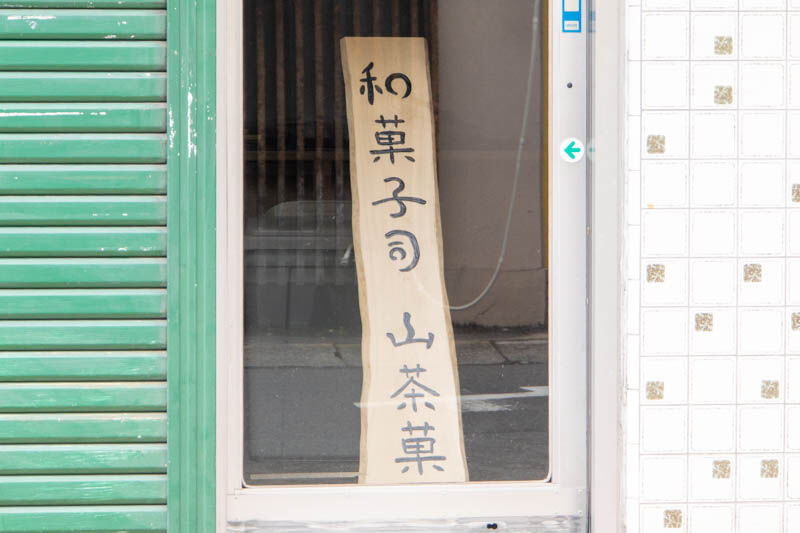 和菓子司 山茶菓